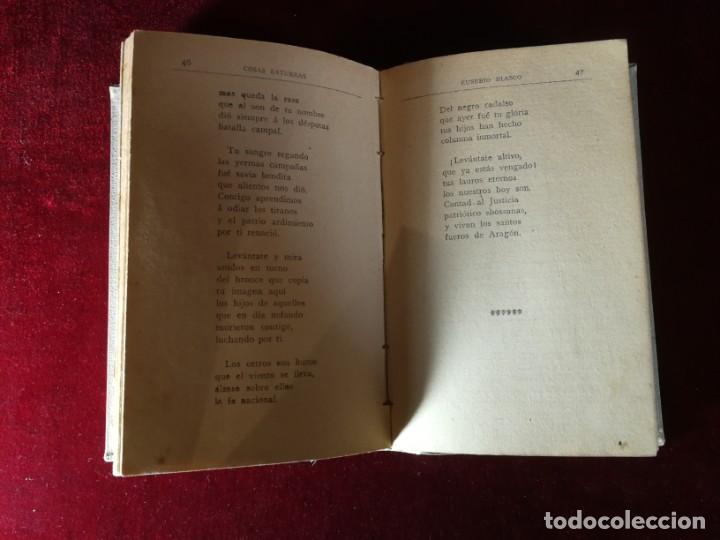 46
COSAS BATURRAS
mas queda la raza
que al son de tu nombre
dió siempre á los déspotas
batalla campal.
Tu sangre regando
las yermas campañas
fué savia bendita
que alientos nos dió.
Contigo aprendimos
á odiar los tiranos
y el patrio ardimiento
por ti renació.
Levántate y mira
unidos en torno
del bronce que copia
tu imagen aquí
los hijos de aquellos
que en día nefando
murieron contigo,
luchando por ti.
Los cetros son humo
que el viento se lleva,
álzase sobre ellos
la fe nacional.
EUSEBIO BLASCO
47
Del negro cadalso
que ayer fué tu gloria
tus hijos han hecho
columna inmortal.
¡Levántate altivo,
que ya estás vengado!
tus lauros eternos
los nuestros hoy son.
Contad al Justicia
patrióticos
y vivan los santos
fueros de Aragón.
todocoleccion.net